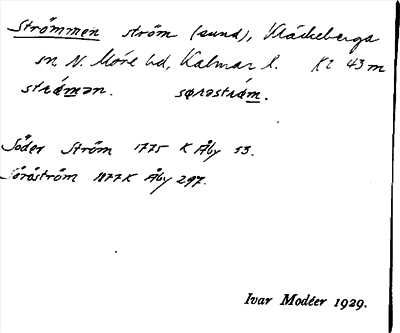 Strömmen ström (sund), Kläckeberga
sn N. Möre hd, Kalmar l. Kl 43 m
strámən. sørəstrám.
Söder Ström 1775 K Åby 53.
Söröström 1877 K Åby 297.
Ivar Modéer 1929.